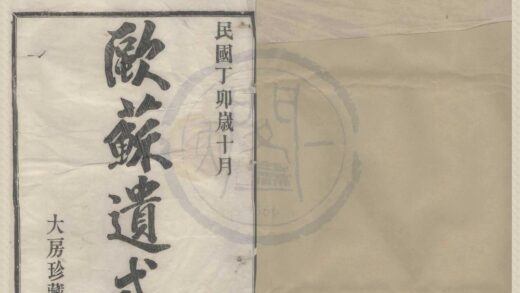 民國丁卯歲十月
歐蘇遺式
大房珍藏